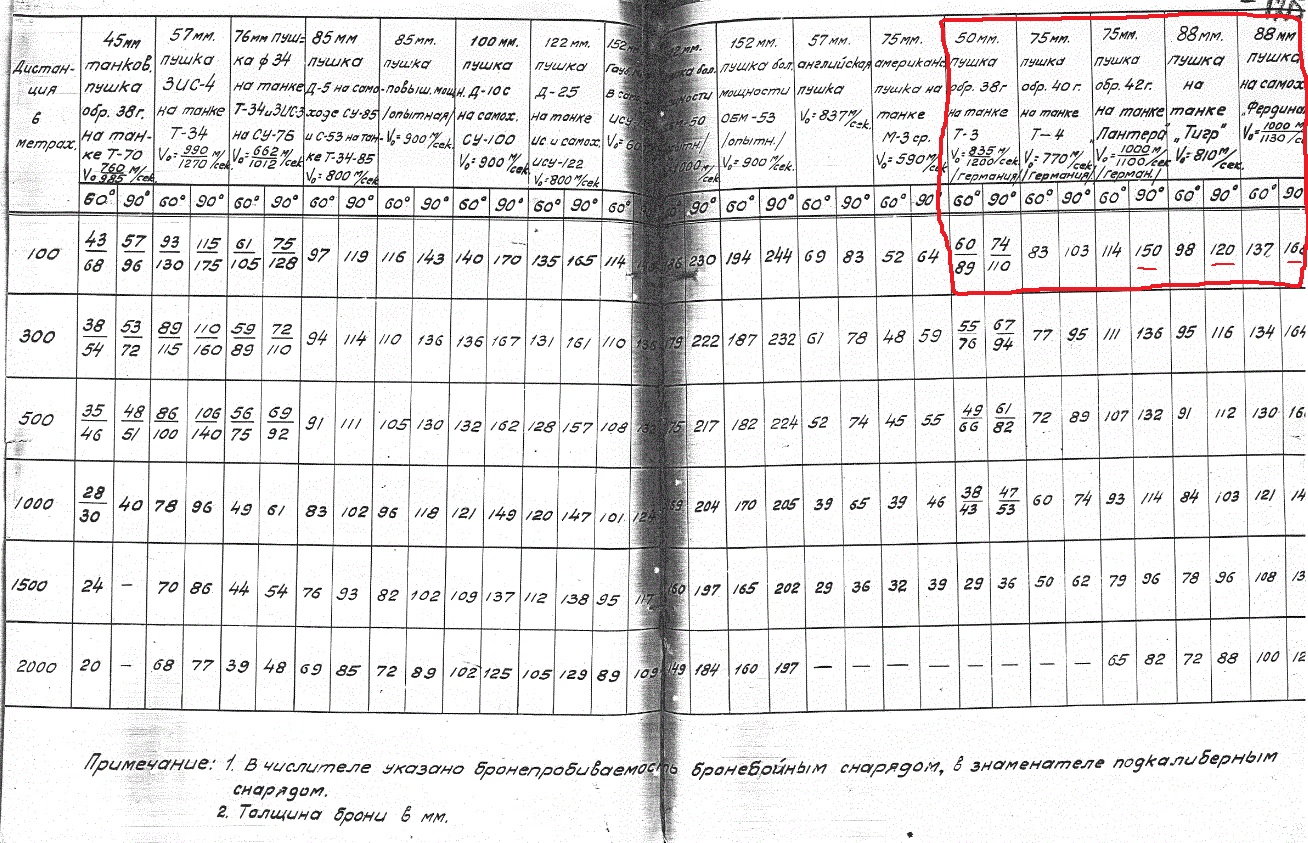 Дистанция в метрах.
45мм танков. пушка обр. 38г. на танке Т-70 V₀ 760/985 м/сек.
57мм. пушка ЗИС-4 на танке Т-34 V₀=990/1270 м/сек.
76мм пушка ф 34 на танке Т-34 и ЗИС3 на СУ-76 V₀=662/1012 м/сек.
85мм пушка Д-5 на самоходе СУ-85 и С-53 на танке Т-34-85 V₀=800 м/сек
85мм. пушка повыш. мощн. /опытная/ V₀=900 м/сек.
100мм. пушка Д-10с на самох. СУ-100 V₀=900 м/сек.
122мм. пушка Д-25 на танке ИС и самох. ИСУ-122 V₀=800 м/сек
152мм. пушка бол. мощности ОБМ-53 /опытн./ V₀=900 м/сек
57мм. английская пушка V₀=837 м/сек.
75мм. американ. пушка на танке М-3 ср. V₀=590 м/сек
50мм. пушка обр. 38г на танке Т-3 V₀=835/1200 м/сек /германия/
75мм. пушка обр. 40г. на танке Т-4 V₀=770 м/сек /германия/
75мм. пушка обр. 42г. на танке „Пантера" V₀=1000/1100 м/сек /герман./
88мм. пушка на танке „Тигр" V₀=810 м/сек.
88мм пушка на самох. V₀=1000/1130 м/сек.
60° 90° 60° 90° 60° 90° 60° 90° 60° 90° 60° 90° 60° 90° 60° 90° 60° 90° 60° 90° 60° 90° 60° 90° 60° 90° 60° 90° 60° 90° 60° 90
100 43/68 57/96 93/130 115/175 61/105 75/128 97 119 116 143 140 170 135 165 114 230 194 244 69 83 52 64 60/89 74/110 83 103 114 150 98 120 137
300 38/54 53/72 89/115 110/160 59/89 72/110 94 114 110 136 136 167 131 161 110 222 187 232 61 78 48 59 55/76 67/94 77 95 111 136 95 116 134 164
500 35/46 48/51 86/100 106/140 56/75 69/92 91 111 105 130 132 162 128 157 108 217 182 224 52 74 45 55 49/66 61/82 72 89 107 132 91 112 130
1000 28/30 40 78 96 49 61 83 102 96 118 121 149 120 147 101 124 204 170 205 39 65 39 46 38/43 47/53 60 74 93 114 84 103 121
1500 24 — 70 86 44 54 76 93 82 102 109 137 112 138 95 117 160 197 165 202 29 36 32 39 29 36 50 62 79 96 78 96 108
2000 20 — 68 77 39 48 69 85 72 89 102 125 105 129 89 109 149 184 160 197 — — — — — — — — 65 82 72 88 100
Примечание: 1. В числителе указано бронепробиваемость бронебойным снарядом, в знаменателе подкалиберным
снарядом.
2. Толщина брони в мм.